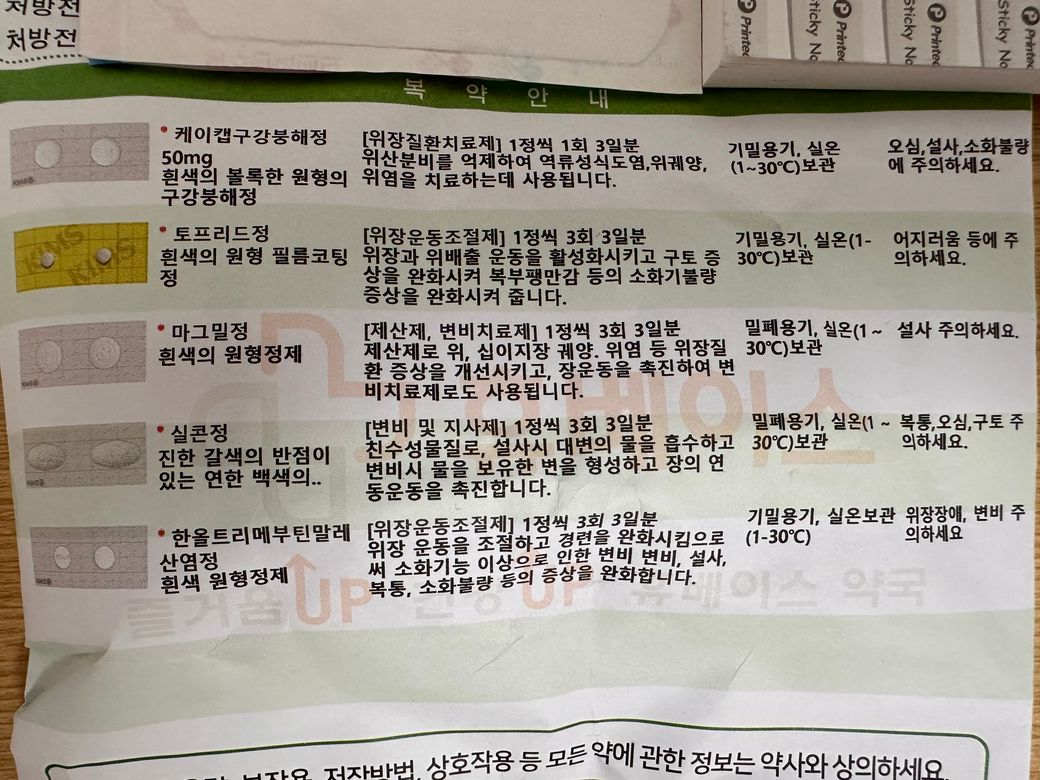 처방전
처방전
Printec
Sticky No
Printec
Sticky No
Printec
Sticky No
Printec
복 약 안 내
* 케이캡구강붕해정
50mg
흰색의 볼록한 원형의
구강붕해정
[위장질환치료제] 1정씩 1회 3일분
위산분비를 억제하여 역류성식도염,위궤양,
위염을 치료하는데 사용됩니다.
기밀용기, 실온
(1~30℃)보관
오심,설사,소화불량
에 주의하세요.
* 토프리드정
흰색의 원형 필름코팅
정
[위장운동조절제] 1정씩 3회 3일분
위장과 위배출 운동을 활성화시키고 구토 증
상을 완화시켜 복부팽만감 등의 소화기불량
증상을 완화시켜 줍니다.
기밀용기, 실온(1-
30℃)보관
어지러움 등에 주
의하세요.
KIMS
KIMS
* 마그밀정
흰색의 원형정제
[제산제, 변비치료제] 1정씩 3회 3일분
제산제로 위, 십이지장 궤양. 위염 등 위장질
환 증상을 개선시키고, 장운동을 촉진하여 변
비치료제로도 사용됩니다.
밀폐용기, 실온(1 ~
30℃)보관
설사 주의하세요.
* 실콘정
진한 갈색의 반점이
있는 연한 백색의..
[변비 및 지사제] 1정씩 3회 3일분
친수성물질로, 설사시 대변의 물을 흡수하고
변비시 물을 보유한 변을 형성하고 장의 연
동운동을 촉진합니다.
밀폐용기, 실온(1 ~
30℃)보관
복통,오심,구토 주
의하세요.
* 한올트리메부틴말레
산염정
흰색 원형정제
[위장운동조절제] 1정씩 3회 3일분
위장 운동을 조절하고 경련을 완화시킴으로
써 소화기능 이상으로 인한 변비 변비, 설사,
복통, 소화불량 등의 증상을 완화합니다.
기밀용기, 실온보관
(1-30℃)
위장장애, 변비 주
의하세요
즐거움UP 건강UP 휴베이스 약국
부작용, 저장방법, 상호작용 등 모든 약에 관한 정보는 약사와 상의하세요.